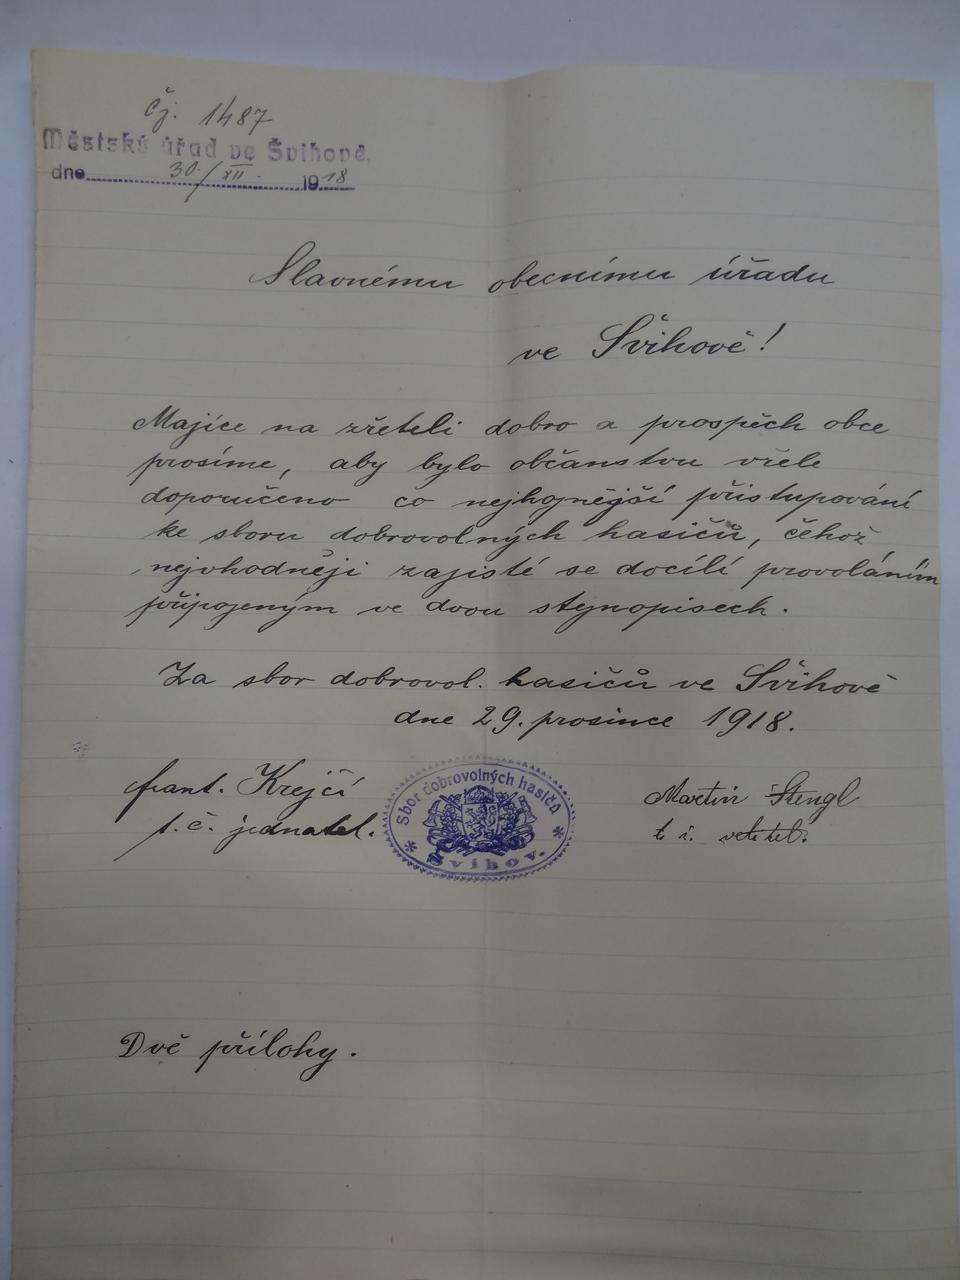 čj. 1487
Městský úřad ve Švihově,
dne 30./XII. 1918
Slavnému obecnímu úřadu
ve Švihově!
Majíce na zřeteli dobro a prospěch obce
prosíme, aby bylo občanstvu vřele
doporučeno co nejhojnější přistupování
ke sboru dobrovolných hasičů, čehož
nejvhodněji zajisté se docílí provoláním
připojeným ve dvou stejnopisech.
Za sbor dobrovol. hasičů ve Švihově
dne 29. prosince 1918.
frant. Krejčí
t. č. jednatel.
Sbor dobrovolných hasičů
Švihov.
Martin Štengl
t. č. velitel.
Dvě přílohy.